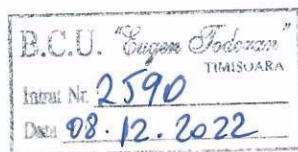 B.C.U. "Eugen Todoran"
TIMISOARA
Intrat Nr. 2590
Data 08.12.2022